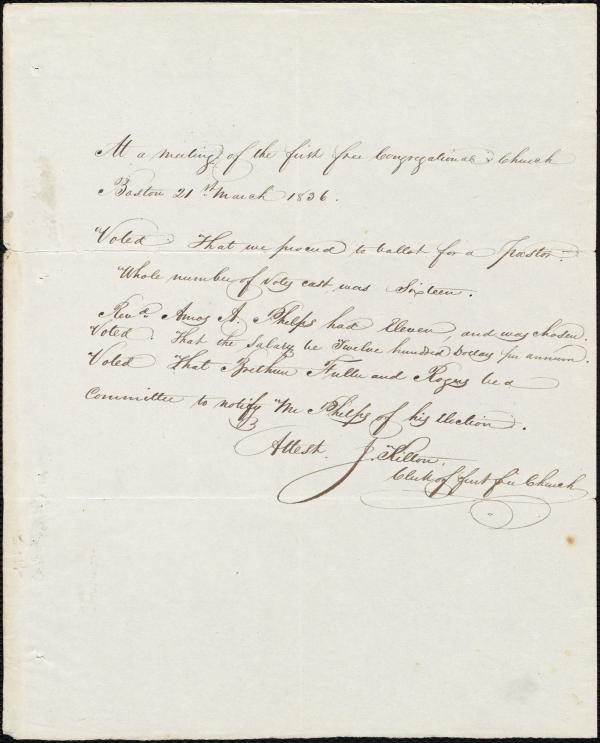 At a meeting of the first free Congregational Church
Boston 21st March 1836.
Voted That we proceed to ballot for a Pastor.
Whole number of votes cast, was Sixteen.
Revd. Amos A. Phelps had Eleven, and was chosen.
Voted. That the Salary be Twelve hundred Dollars per annum.
Voted That Brethren Fuller and Rogers be a
Committee to notify Mr Phelps of his Election.
Attest. J. Kilton.
Clerk of first free Church